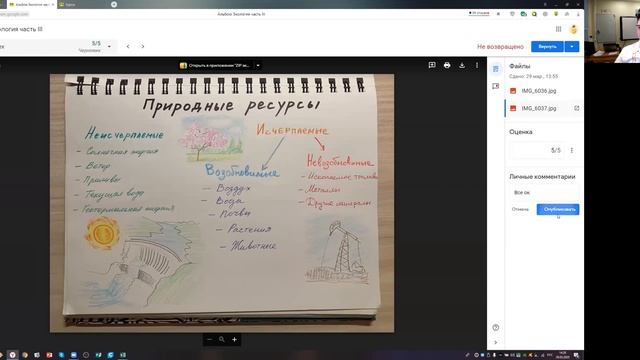 Альбом Экология часть III
Альбом Экология часть III
ология часть III
5/5
Черновики
Не возвращено
Вернуть
Открыть в приложении "ZIP
Природные ресурсы
Неисчерпаемые
- Солнечная энергия
- Ветер
- Приливы
- Текущая вода
- Геотермальная энергия
Исчерпаемые
Возобновимые
- Воздух
- Вода
- Почвы
- Растения
- Животные
Невозобновимые
- Ископаемое топливо
- Металлы
- Другие минералы
Файлы
Сдано: 29 мар., 13:55
IMG_6036.jpg
IMG_6037.jpg
Оценка
5/5
Личные комментарии
Все ок
Отмена
Опубликовать